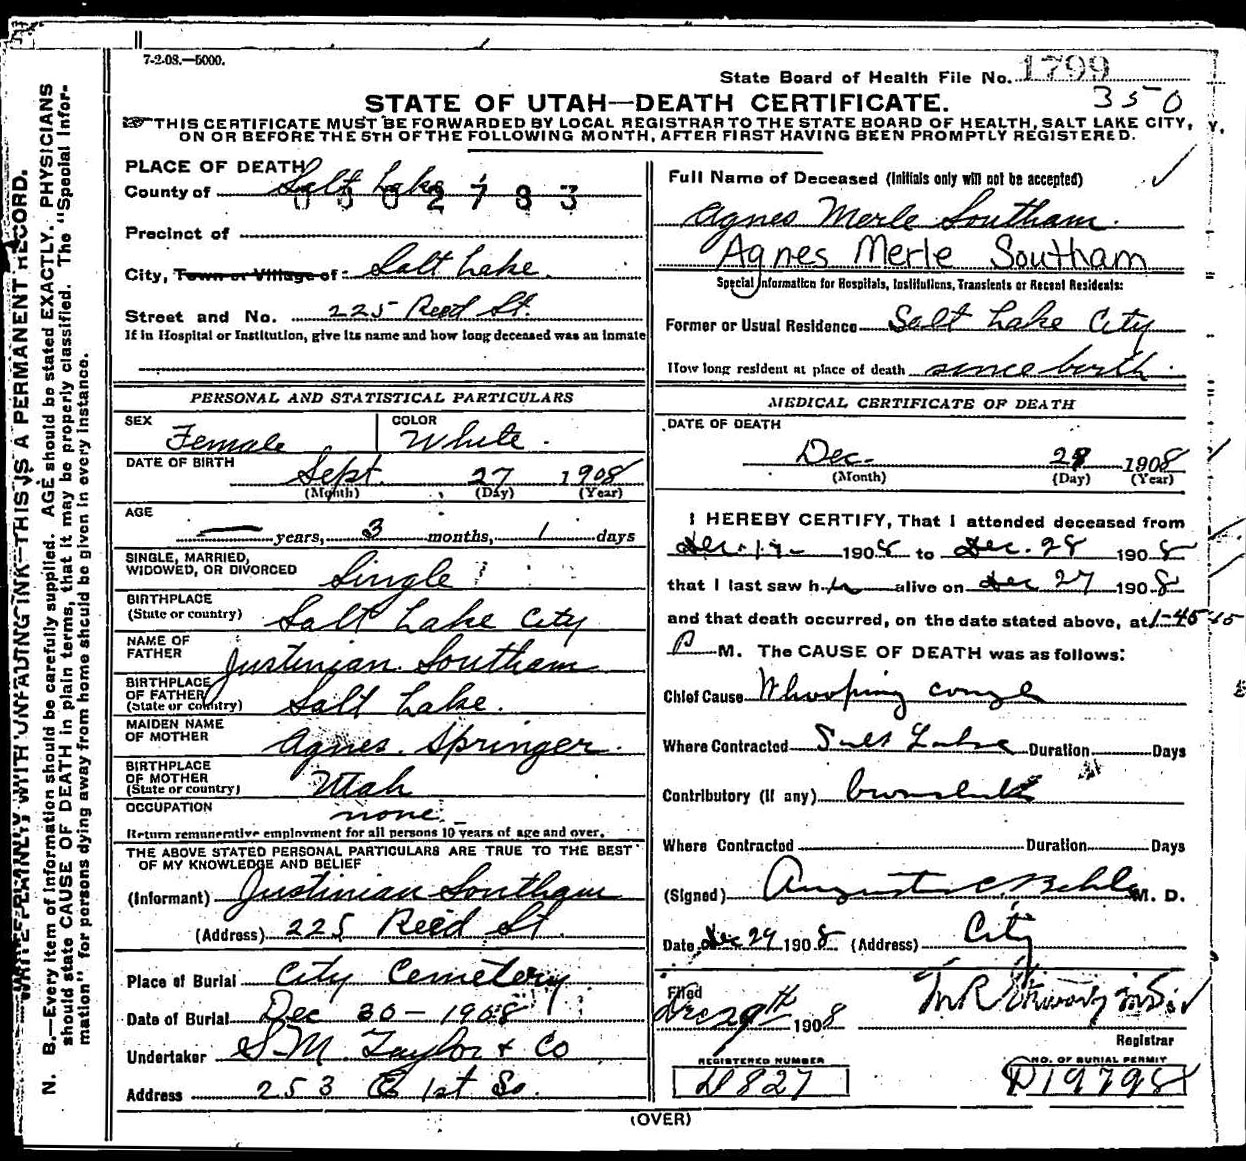 7-2-08.—5000.
State Board of Health File No. 1799
350
STATE OF UTAH—DEATH CERTIFICATE.
THIS CERTIFICATE MUST BE FORWARDED BY LOCAL REGISTRAR TO THE STATE BOARD OF HEALTH, SALT LAKE CITY,
ON OR BEFORE THE 5TH OF THE FOLLOWING MONTH, AFTER FIRST HAVING BEEN PROMPTLY REGISTERED.
WRITE PLAINLY WITH UNFADING INK—THIS IS A PERMANENT RECORD.
N. B.—Every item of information should be carefully supplied. AGE should be stated EXACTLY. PHYSICIANS
should state CAUSE OF DEATH in plain terms, that it may be properly classified. The "Special Infor-
mation" for persons dying away from home should be given in every instance.
PLACE OF DEATH
County of Salt Lake
0002783
Precinct of
City, Town or Village of Salt Lake
Street and No. 225 Reed St.
If in Hospital or Institution, give its name and how long deceased was an inmate
PERSONAL AND STATISTICAL PARTICULARS
SEX Female
COLOR White
DATE OF BIRTH Sept. 27 1908
(Month) (Day) (Year)
AGE
— years, 3 months, 1 days
SINGLE, MARRIED,
WIDOWED, OR DIVORCED Single
BIRTHPLACE
(State or country) Salt Lake City
NAME OF
FATHER Justinian Southam
BIRTHPLACE
OF FATHER
(State or country) Salt Lake.
MAIDEN NAME
OF MOTHER Agnes Springer.
BIRTHPLACE
OF MOTHER
(State or country) Utah
OCCUPATION none
Return remunerative employment for all persons 10 years of age and over.
THE ABOVE STATED PERSONAL PARTICULARS ARE TRUE TO THE BEST
OF MY KNOWLEDGE AND BELIEF
(Informant) Justinian Southam
(Address) 225 Reed St.
Place of Burial City Cemetery
Date of Burial Dec 30 — 1908
Undertaker S. M. Taylor & Co
Address 253 E 1st So.
Full Name of Deceased (Initials only will not be accepted)
Agnes Merle Southam.
Agnes Merle Southam
Special Information for Hospitals, Institutions, Transients or Recent Residents:
Former or Usual Residence Salt Lake City
How long resident at place of death since birth
MEDICAL CERTIFICATE OF DEATH
DATE OF DEATH
Dec. 28 1908
(Month) (Day) (Year)
I HEREBY CERTIFY, That I attended deceased from
Dec. 1908 to Dec. 28 1908
that I last saw her alive on Dec 27 1908
and that death occurred, on the date stated above, at 1-45
P M. The CAUSE OF DEATH was as follows:
Chief Cause Whooping cough
Where Contracted Salt Lake Duration Days
Contributory (if any) bronchitis
Where Contracted Duration Days
(Signed) August C. Behle M. D.
Date Dec 29 1908 (Address) City
Filed
Dec 29th 1908
Registrar
REGISTERED NUMBER
D827
NO. OF BURIAL PERMIT
D19798
(OVER)